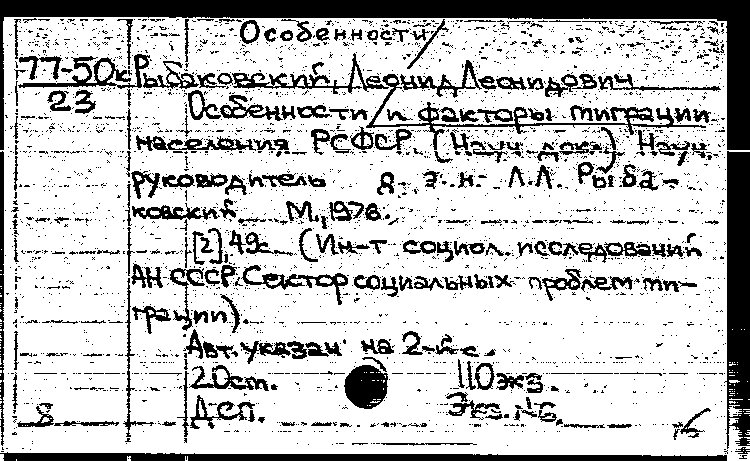 Особенности
77-50к Рыбаковский, Леонид Леонидович
23
Особенности и факторы миграции
населения РСФСР. (Науч. докл.) Науч.
руководитель д. э. н. Л.Л. Рыба-
ковский. М., 1976.
[2], 49с. (Ин-т социол. исследований
АН СССР. Сектор социальных проблем ми-
грации).
Авт. указан на 2-й с.
20см. 110экз.
8 ДСП. Экз. №6.